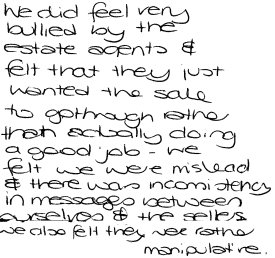 We did feel very
bullied by the
estate agents &
felt that they just
wanted the sale
to go through rather
than actually doing
a good job - we
felt we were mislead
& there was inconsistency
in messages between
ourselves & the sellers
we also felt they were rather
manipulative.